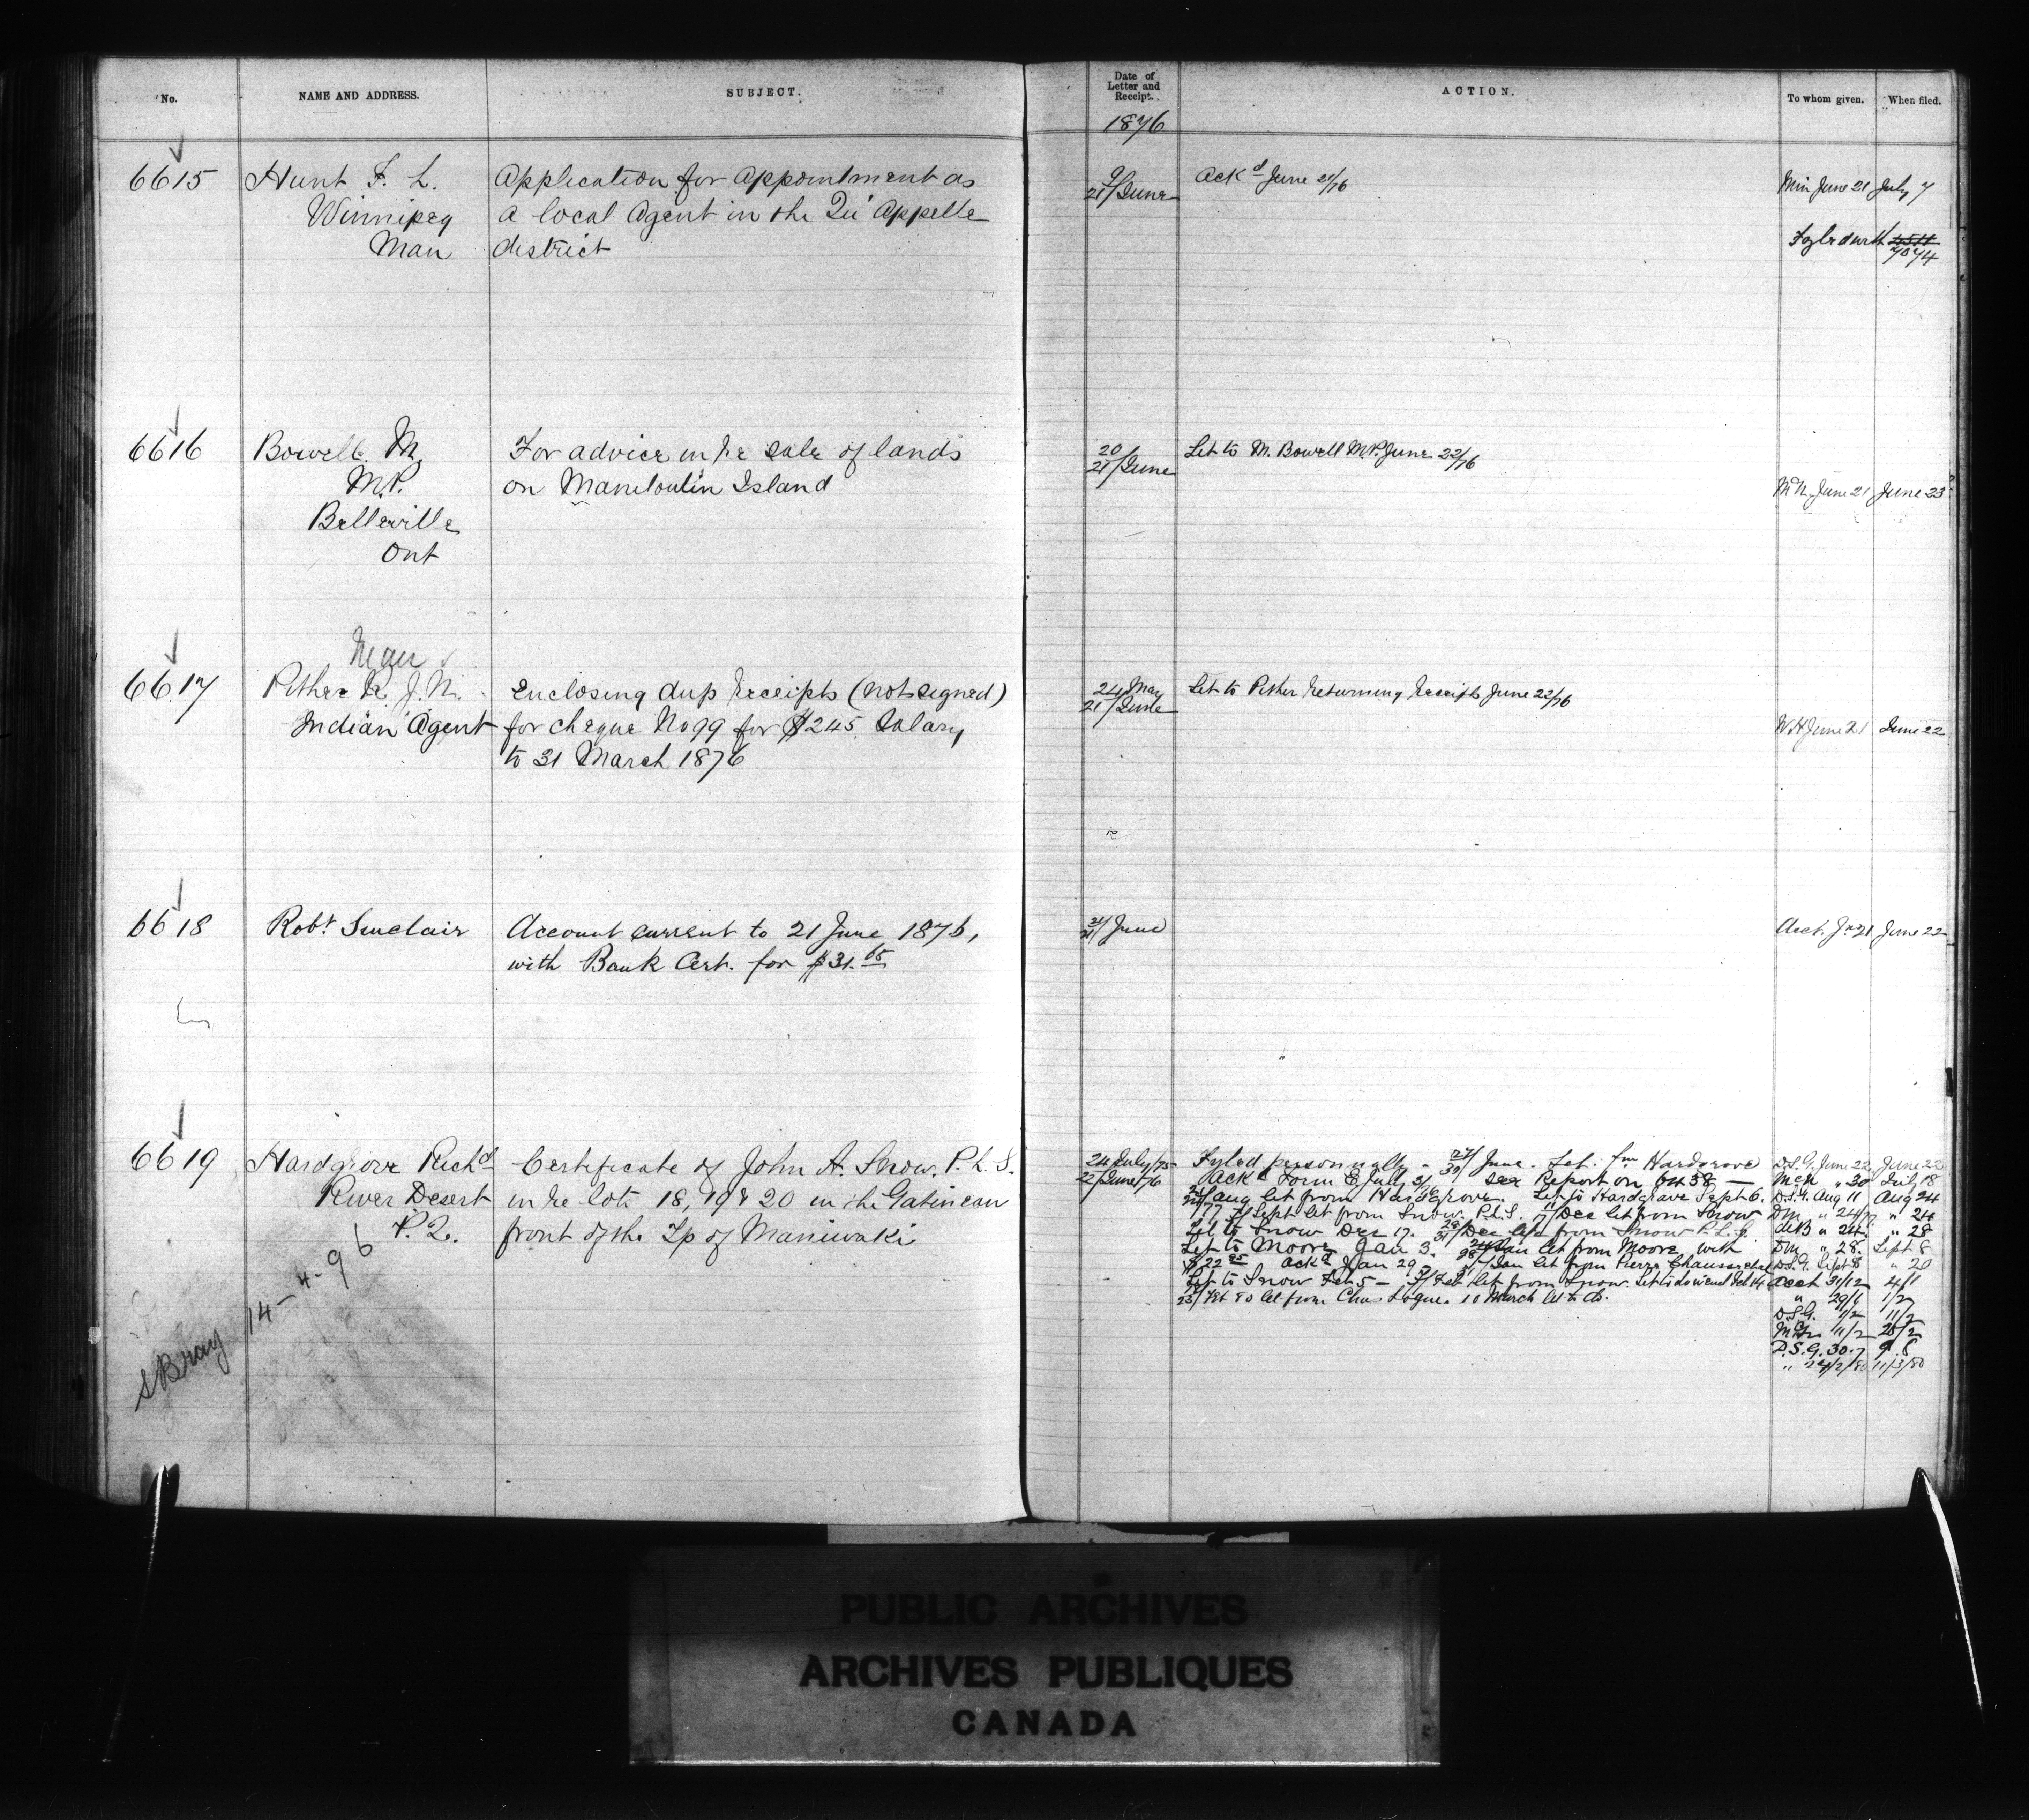 No.
NAME AND ADDRESS.
SUBJECT.
Date of
Letter and
Receipt.
ACTION.
To whom given.
When filed.
1876
6615
Hunt F. L.
Winnipeg
Man
Application for appointment as
a local Agent in the Qu'Appelle
district
9/
21/June
Ackd June 21/76
Min June 21 July 7
Fyled with 4511
7074
6616
Bowell M
M.P.
Belleville
Ont
For advice in re sale of lands
on Manitoulin Island
20/
21/June
Let to M. Bowell M.P. June 22/76
June 21 June 23
6617
Pither R. J. N.
Indian Agent
Enclosing dup receipts (not signed)
for cheque No 99 for $245 Salary
to 31 March 1876
24 May
21/June
Let to Pither returning receipts June 22/76
WH June 21 June 22
6618
Robt Sinclair
Account current to 21 June 1876,
with Bank Cert. for $31.65
21/
21/June
Acct. Jne 21 June 22
6619
Hardgrove Richd
River Desert
P.Q.
Certificate of John A. Snow, P.L.S.
in re lots 18, 19 & 20 in the Gatineau
front of the Tp of Maniwaki
24 July/75
22/June/76
Fyled personally - 27/30 June. Let. fm Hardgrove
Ackd Form E July 3/76 see Report on 6438 —
Aug let from Hardgrove. Let to Hardgrave Sept 6.
Sept let from Snow. P.L.S. Dec let from Snow
Let to Snow Dec 17. 29/31 Dec let from Snow P.L.S.
Let to Moore Jan 3. Jan let from Moore with
$22 Ackd Jan 29 Jan let from Pierre
Let to Snow Feb 5 - Feb let from Snow.
23/Feb 80 let from Chas Logue. 10 March let to do.
D.S.G. June 22 June 22
McN " 30 July 18
D.S.G. Aug 11 Aug 24
DM " 24 " 24
" 24 " 28
DM " 28 Sept 8
D.S.G. Sept 8 " 20
Acct 31/12 4/1
" 29/1 1/2
D.S.G. 1/2 11/2
11/2 28/2
D.S.G. 30.7 9.8
11/3/80
SBray 14-4-96
PUBLIC ARCHIVES
ARCHIVES PUBLIQUES
CANADA